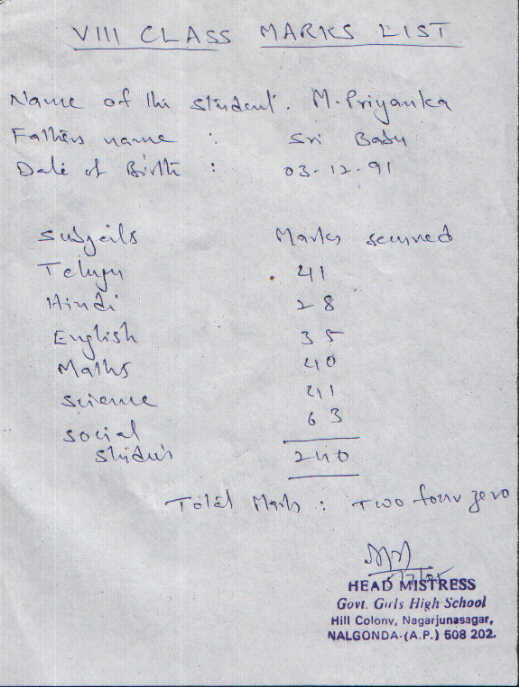 VIII CLASS MARKS LIST
Name of the student. M. Priyanka
Fathers name : Sri Babu
Date of Birth : 03-12-91
Subjects Marks secured
Telugu 41
Hindi 28
English 35
Maths 40
science 41
social 63
studies 240
Total Marks : Two four zero
HEAD MISTRESS
Govt. Girls High School
Hill Colony, Nagarjunasagar,
NALGONDA-(A.P.) 508 202.